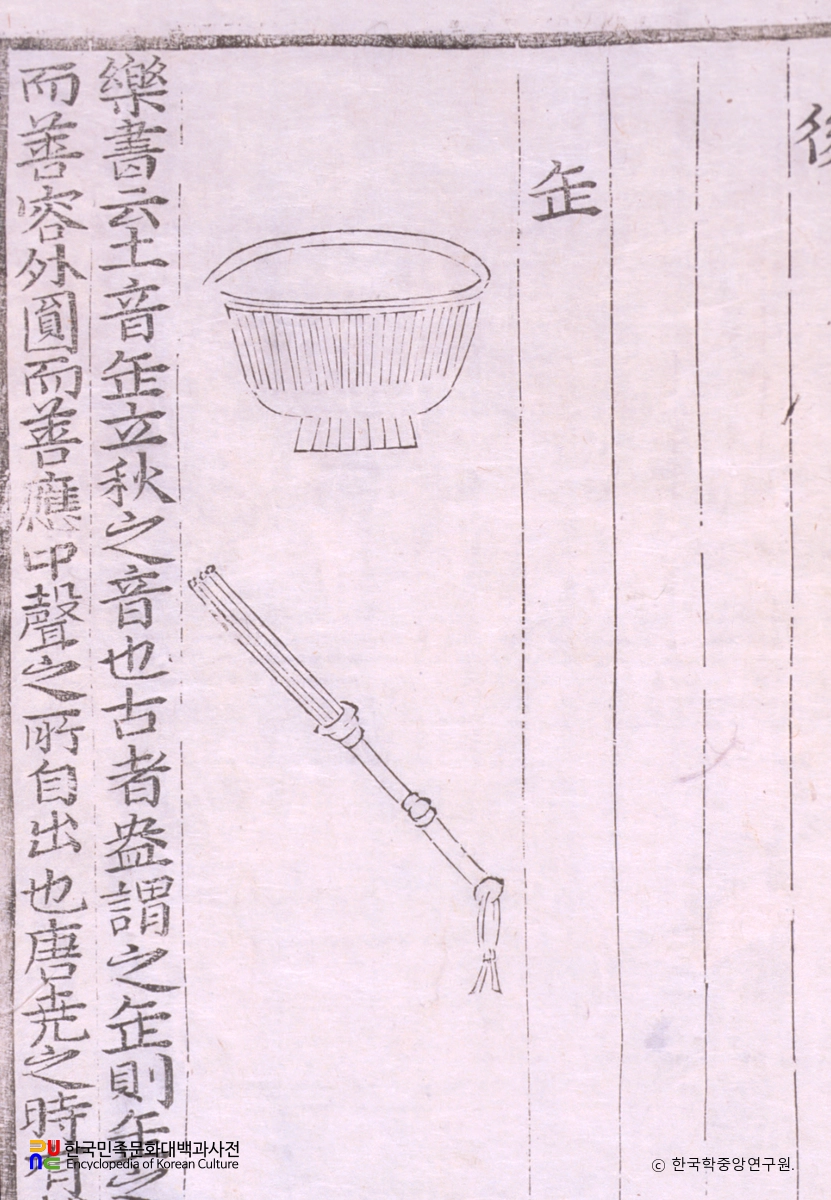 缶
樂書云土音缶立秋之音也古者盎謂之缶則缶之
而善容外圓而善應中聲之所自出也唐堯之時有
한국민족문화대백과사전
Encyclopedia of Korean Culture
© 한국학중앙연구원.